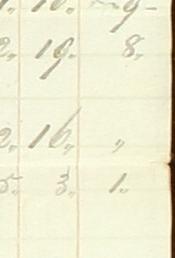 2,, 19,, 8,,
2,, 16,, ,,
5,, 3,, 1,,